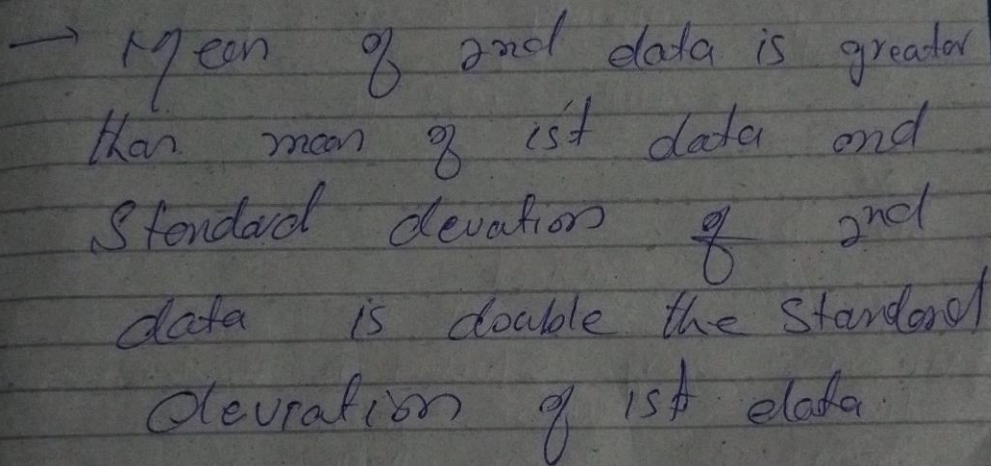 → Mean of 2nd data is greater
than mean of 1st data and
Standard devation of 2nd
data is double the standard
deviation of 1st data.